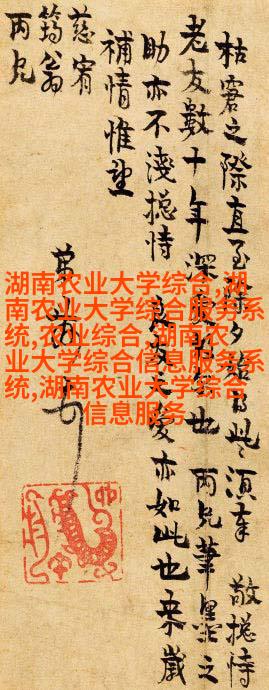 枯窘之際直至除夕此須奉 敬摅恃
老友數十年深也 丙兄筆墨之
助亦不淺摅恃 良友之愛亦如此也乘歲
補情惟望
慈宥
筠翁
丙兄
湖南农业大学综合,湖
南农业大学综合服务系
统,农业综合,湖南农
业大学综合信息服务系
统,湖南农业大学综合
信息服务